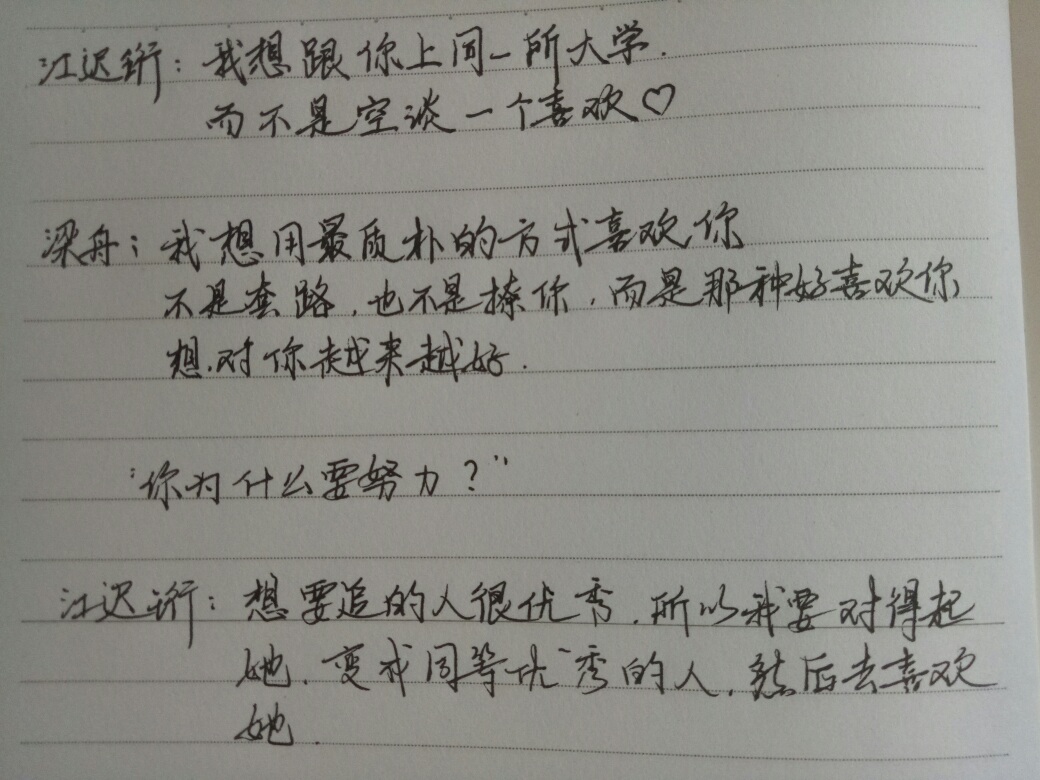 江迟衡：我想跟你上同一所大学.
而不是空谈一个喜欢♡
梁舟：我想用最质朴的方式喜欢你
不是套路，也不是撩你，而是那种好喜欢你
想.对你越来越好.
“你为什么要努力？”
江迟衡：想要追的人很优秀，所以我要对得起
她，变成同等优秀的人，然后去喜欢
她.